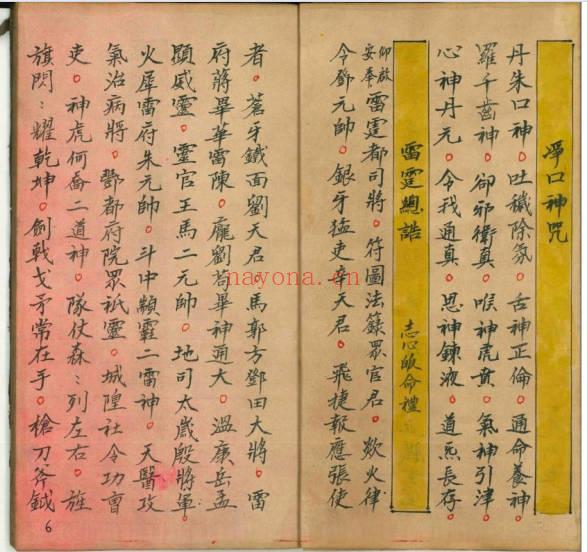 淨口神咒
丹朱口神。吐穢除氛。舌神正倫。通命養神。
羅千齒神。卻邪衛真。喉神虎賁。氣神引津。
心神丹元。令我通真。思神鍊液。道炁長存。
雷霆總誥 志心皈命禮
仰啟
安奉
雷霆都司將。符圖法籙眾官君。欻火律
令鄧元帥。銀牙猛吏辛天君。飛捷報應張使
者。蒼牙鐵面劉天君。馬郭方鄧田大將。雷
府蔣畢華雷陳。龐劉苟畢神通大。溫康岳孟
顯威靈。靈官王馬二元帥。地司太歲殷將軍
火犀雷府朱元帥。斗中顓霆二雷神。天醫攻
氣治病將。酆都府院眾祇靈。城隍社令功曹
吏。神虎何喬二道神。隊仗森:列左右。旌
旗閃:耀乾坤。劍戟戈矛常在手。槍刀斧鉞
6
nayona.cn